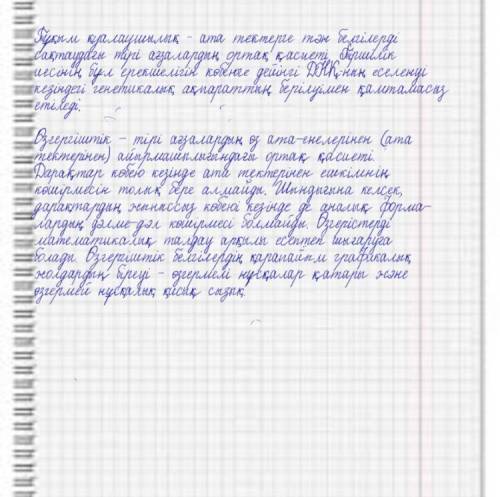 Тұқым қуалаушылық - ата тектерге тән белгілерді
сақтаудағы тірі ағзалардың ортақ қасиеті. Тіршілік
иесінің бұл ерекшелігін көбеюге дейінгі ДНҚ-ның еселенуі
кезіндегі генетикалық ақпараттың берілуімен қамтамасыз
етіледі.
Өзгергіштік - тірі ағзалардың өз ата-енелерінен (ата
тектерінен) айырмашылығындағы ортақ қасиеті.
Дарақтар көбею кезінде ата тектерінен ешкімнің
көшірмесін толық бере алмайды. Шындығына келсек,
дарақтардың жыныссыз көбеюі кезінде де аналық форма-
лардың дәлме-дәл көшірмесі болмайды. Өзгерістерді
математикалық талдау арқылы есептеп шығаруға
болады. Өзгергіштік белгілердің қарапайым графикалық
жолдардың біреуі - өзгермелі нұсқалар қатары және
өзгермелі нұсқалық қисық сызық.